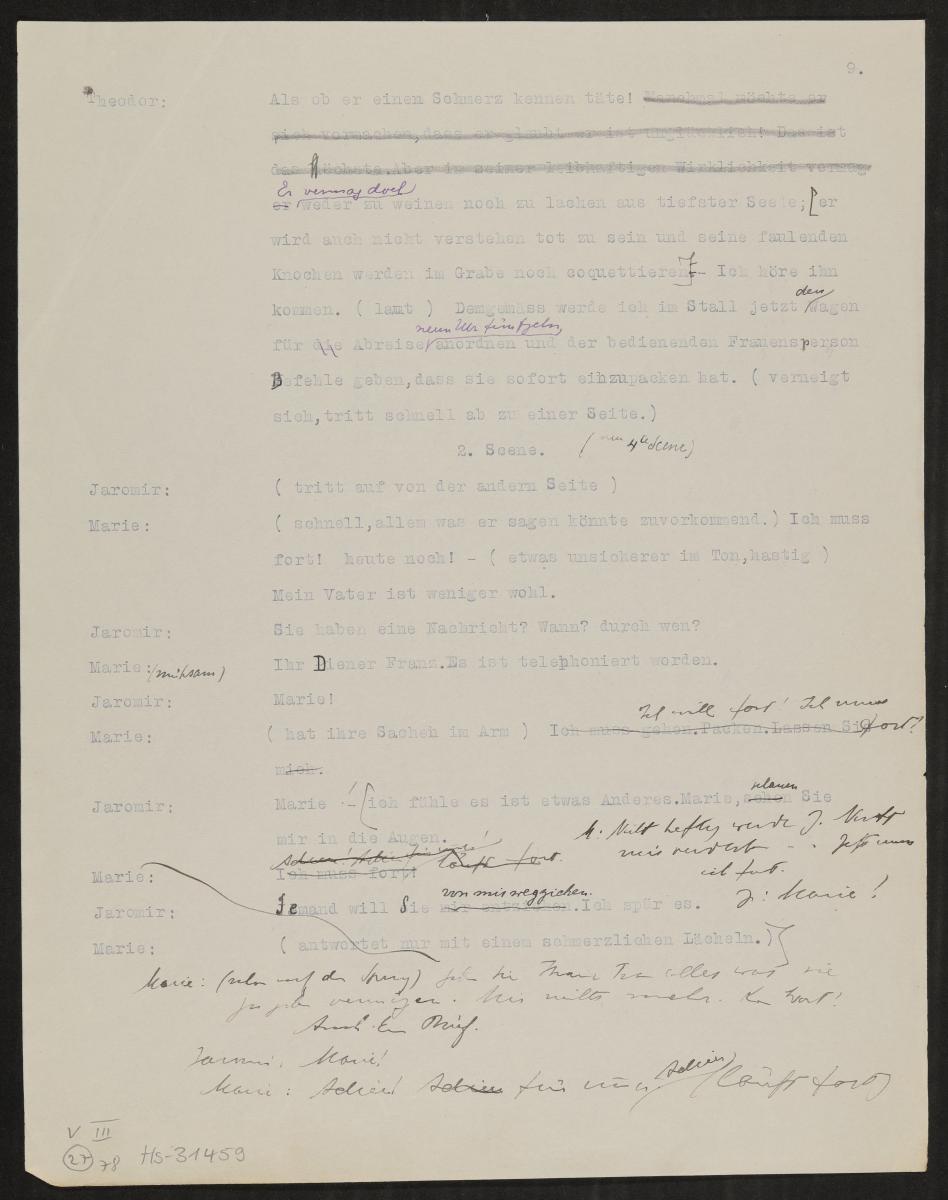 9.
Theodor: Als ob er einen Schmerz kennen täte! Manchmal möchte er
sich vormachen,dass er glaubt er ist unglücklich! Das ist
das Höchste.Aber in seiner leibhaftigen Wirklichkeit vermag
Er vermag doch
er weder zu weinen noch zu lachen aus tiefster Seele; [er
wird auch nicht verstehen tot zu sein und seine faulenden
Knochen werden im Grabe noch coquettieren]- Ich höre ihn
kommen. ( lamt ) Demgemäss werde ich im Stall jetzt den Wagen
neun Uhr fünfzehn
für die Abreise anordnen und der bedienenden Frauensperson
Befehle geben,dass sie sofort einzupacken hat. ( verneigt
sich,tritt schnell ab zu einer Seite.)
2. Scene. ( 4te Scene)
Jaromir: ( tritt auf von der andern Seite )
Marie: ( schnell,allem was er sagen könnte zuvorkommend.) Ich muss
fort! heute noch! - ( etwas unsicherer im Ton,hastig )
Mein Vater ist weniger wohl.
Jaromir: Sie haben eine Nachricht? Wann? durch wen?
Marie: (mühsam) Ihr Diener Franz.Es ist telephoniert worden.
Jaromir: Marie!
Ich will fort! Ich muss
Marie: ( hat ihre Sachen im Arm ) Ich muss gehen.Packen.Lassen Sie fort!
mich.
Jaromir: Marie ! - [ich fühle es ist etwas Anderes.Marie,sehen schauen Sie
mir in die Augen.
M: Nicht heftig werden J. Nicht
Jetzt muss
ich fort.
läuft fort.
Marie: Ich muss fort!
J: Marie!
von mir wegziehen.
Jaromir: Jemand will Sie mir entziehen.Ich spür es.
Marie: ( antwortet nur mit einem schmerzlichen Lächeln.)]
Marie: (schon auf dem Sprung) alles was sie
zu geben vermögen. Mir nichts mehr. Kein Wort!
Auch kein Brief.
Jaromir: Marie!
Marie: Adieu! Adieu für immer Adieu (läuft fort)
V III
27 78 Hs-31459